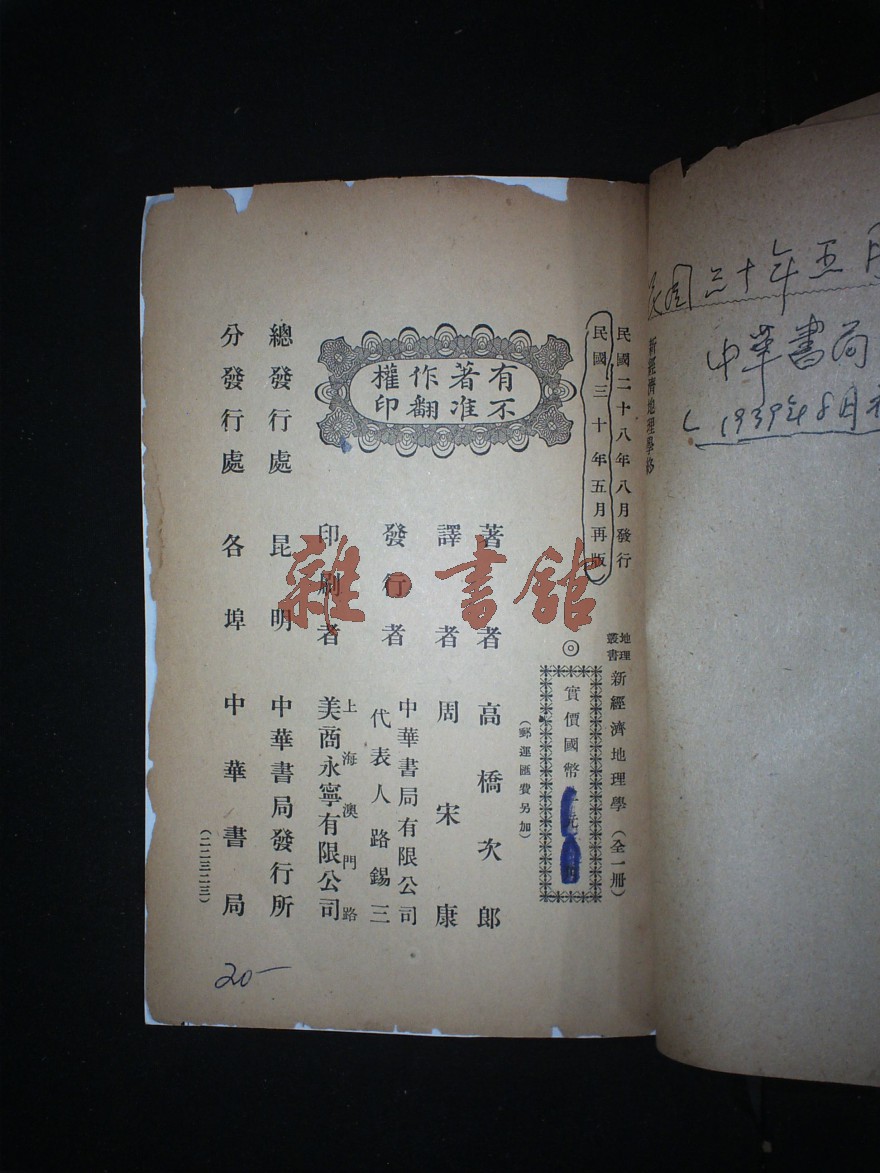 民國二十八年八月發行
民國三十年五月再版
地理
叢書
新經濟地理學（全一冊）
◎
實價國幣
（郵運匯費另加）
有著作權
不准翻印
著者 高橋次郎
譯者 周宋康
發行者 中華書局有限公司
代表人路錫三
印刷者 上海澳門路
美商永寧有限公司
總發行處 昆明 中華書局發行所
分發行處 各埠 中華書局
（二二三二三）
20—
雜·書館
民国三十年五月
中華書局
1939年8月
新經濟地理學